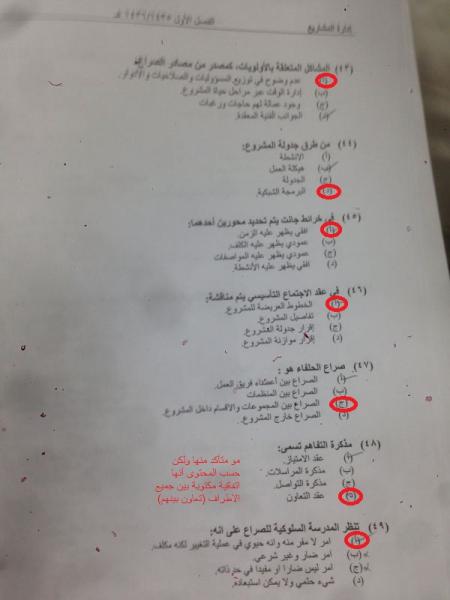 إدارة المشاريع
الفصل الأول ١٤٣٦/١٤٣٥ هـ
(٤٣) المشاكل المتعلقة بالأولويات، كمصدر من مصادر الصراع:
(أ) عدم وضوح في توزيع المسؤوليات والصلاحيات والأدوار.
(ب) إدارة الوقت عبر مراحل حياة المشروع.
(ج) وجود عمالة لهم حاجات ورغبات
(د) الجوانب الفنية المعقدة.
(٤٤) من طرق جدولة المشروع:
(أ) الانشطة
(ب) هيكلة العمل
(ج) الجدولة
(د) البرمجة الشبكية.
(٤٥) في خرائط جانت يتم تحديد محورين أحدهما:
(أ) افقي يظهر عليه الزمن.
(ب) عمودي يظهر عليه الكلف.
(ج) عمودي يظهر عليه المواصفات
(د) افقي يظهر عليه الأنشطة.
(٤٦) في عقد الاجتماع التأسيسي يتم مناقشة:
(أ) الخطوط العريضة للمشروع.
(ب) تفاصيل المشروع.
(ج) إقرار جدولة المشروع.
(د) إقرار موازنة المشروع.
(٤٧) صراع الحلفاء هو :
(أ) الصراع بين أعضاء فريق العمل.
(ب) الصراع بين المنظمات
(ج) الصراع بين المجموعات والاقسام داخل المشروع.
(د) الصراع خارج المشروع.
(٤٨) مذكرة التفاهم تسمى:
(أ) عقد الامتياز.
(ب) مذكرة المراسلات.
(ج) مذكرة التواصل.
(د) عقد التعاون
مو متأكد منها ولكن
حسب المحتوى أنها
اتفاقية مكتوبة بين جميع
الاطراف (تعاون بينهم)
(٤٩) تنظر المدرسة السلوكية للصراع على انه:
(أ) امر لا مفر منه وانه حيوي في عملية التغيير لكنه مكلف.
(ب) امر ضار وغير شرعي.
(ج) امر ليس ضارا او مفيدا في حد ذاته.
(د) شيء حتمي ولا يمكن استبعاده.